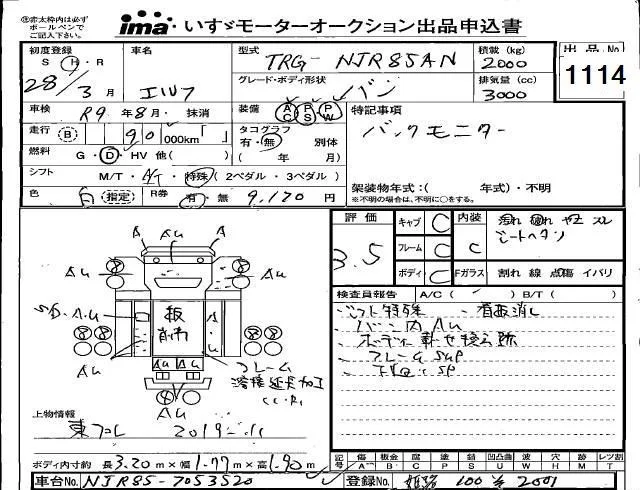 ㊟赤太枠内は必ず
ボールペンで
ご記入下さい。
ima いすゞモーターオークション出品申込書
初度登録
S H・R
28年3月
車名
エルフ
型式
TRG- NJR85AN
グレード・ボディ形状
バン
積載 (kg)
2000
排気量 (cc)
3000
出品No
1114
車検 R9年8月・抹消
装備 AC PS PW
特記事項
バックモニター
走行 B 90 000km「 」
タコグラフ
有・無 別体
( 年 月)
燃料 G・D・HV 他( )
シフト M/T・A/T・特殊(2ペダル・3ペダル)
架装物年式:( 年式)・不明
※不明の場合は、不明に〇をする。
色 白 (指定) R券 有・無 9,170 円
評価
3.5
キャブ C
フレーム C
ボディ C
内装 C
Fガラス 割れ 線 点傷 イバリ
検査員報告 A/C( ) B/T( )
・シフト特殊 ・看板消し
・バン内 AU
・フレーム sup
A AU A
AU AU
S.D.A.U
板
AU AU
AU AU
フレーム
溶接延長加工
上物情報
東プレ 2019.11
ボディ内寸約 長3.20m×幅1.77m×高1.90m
車台No. NJR85-7053520
記号 傷 板金 腐 塗 損 凹凸曲 波 穴 跡 レンズ割
A B C P S U W H M L T
登録No. 姫路 100 せ 2001